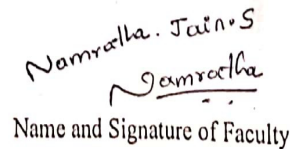 Namratha. Jain.S
Namratha
Name and Signature of Faculty